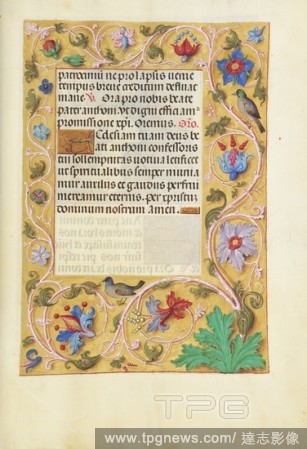 patrocinii ne prolapsus veme
tempus breve creditum desinat
mane V. Ora pro nobis beate
pater anthoni Vt digni efficiamr
promissione xpi. Oremus. Oro.
Celesiam tuam deus be
ati anthoni confessoris
tui sollempnitas votiva letificet
ut spiritualibus semper munia
mur auxiliis et gaudiis perfrui
mereamur eternis. Per xpristū
dominum nostrum amen.
TPG
www.tpgnews.com/達志影像